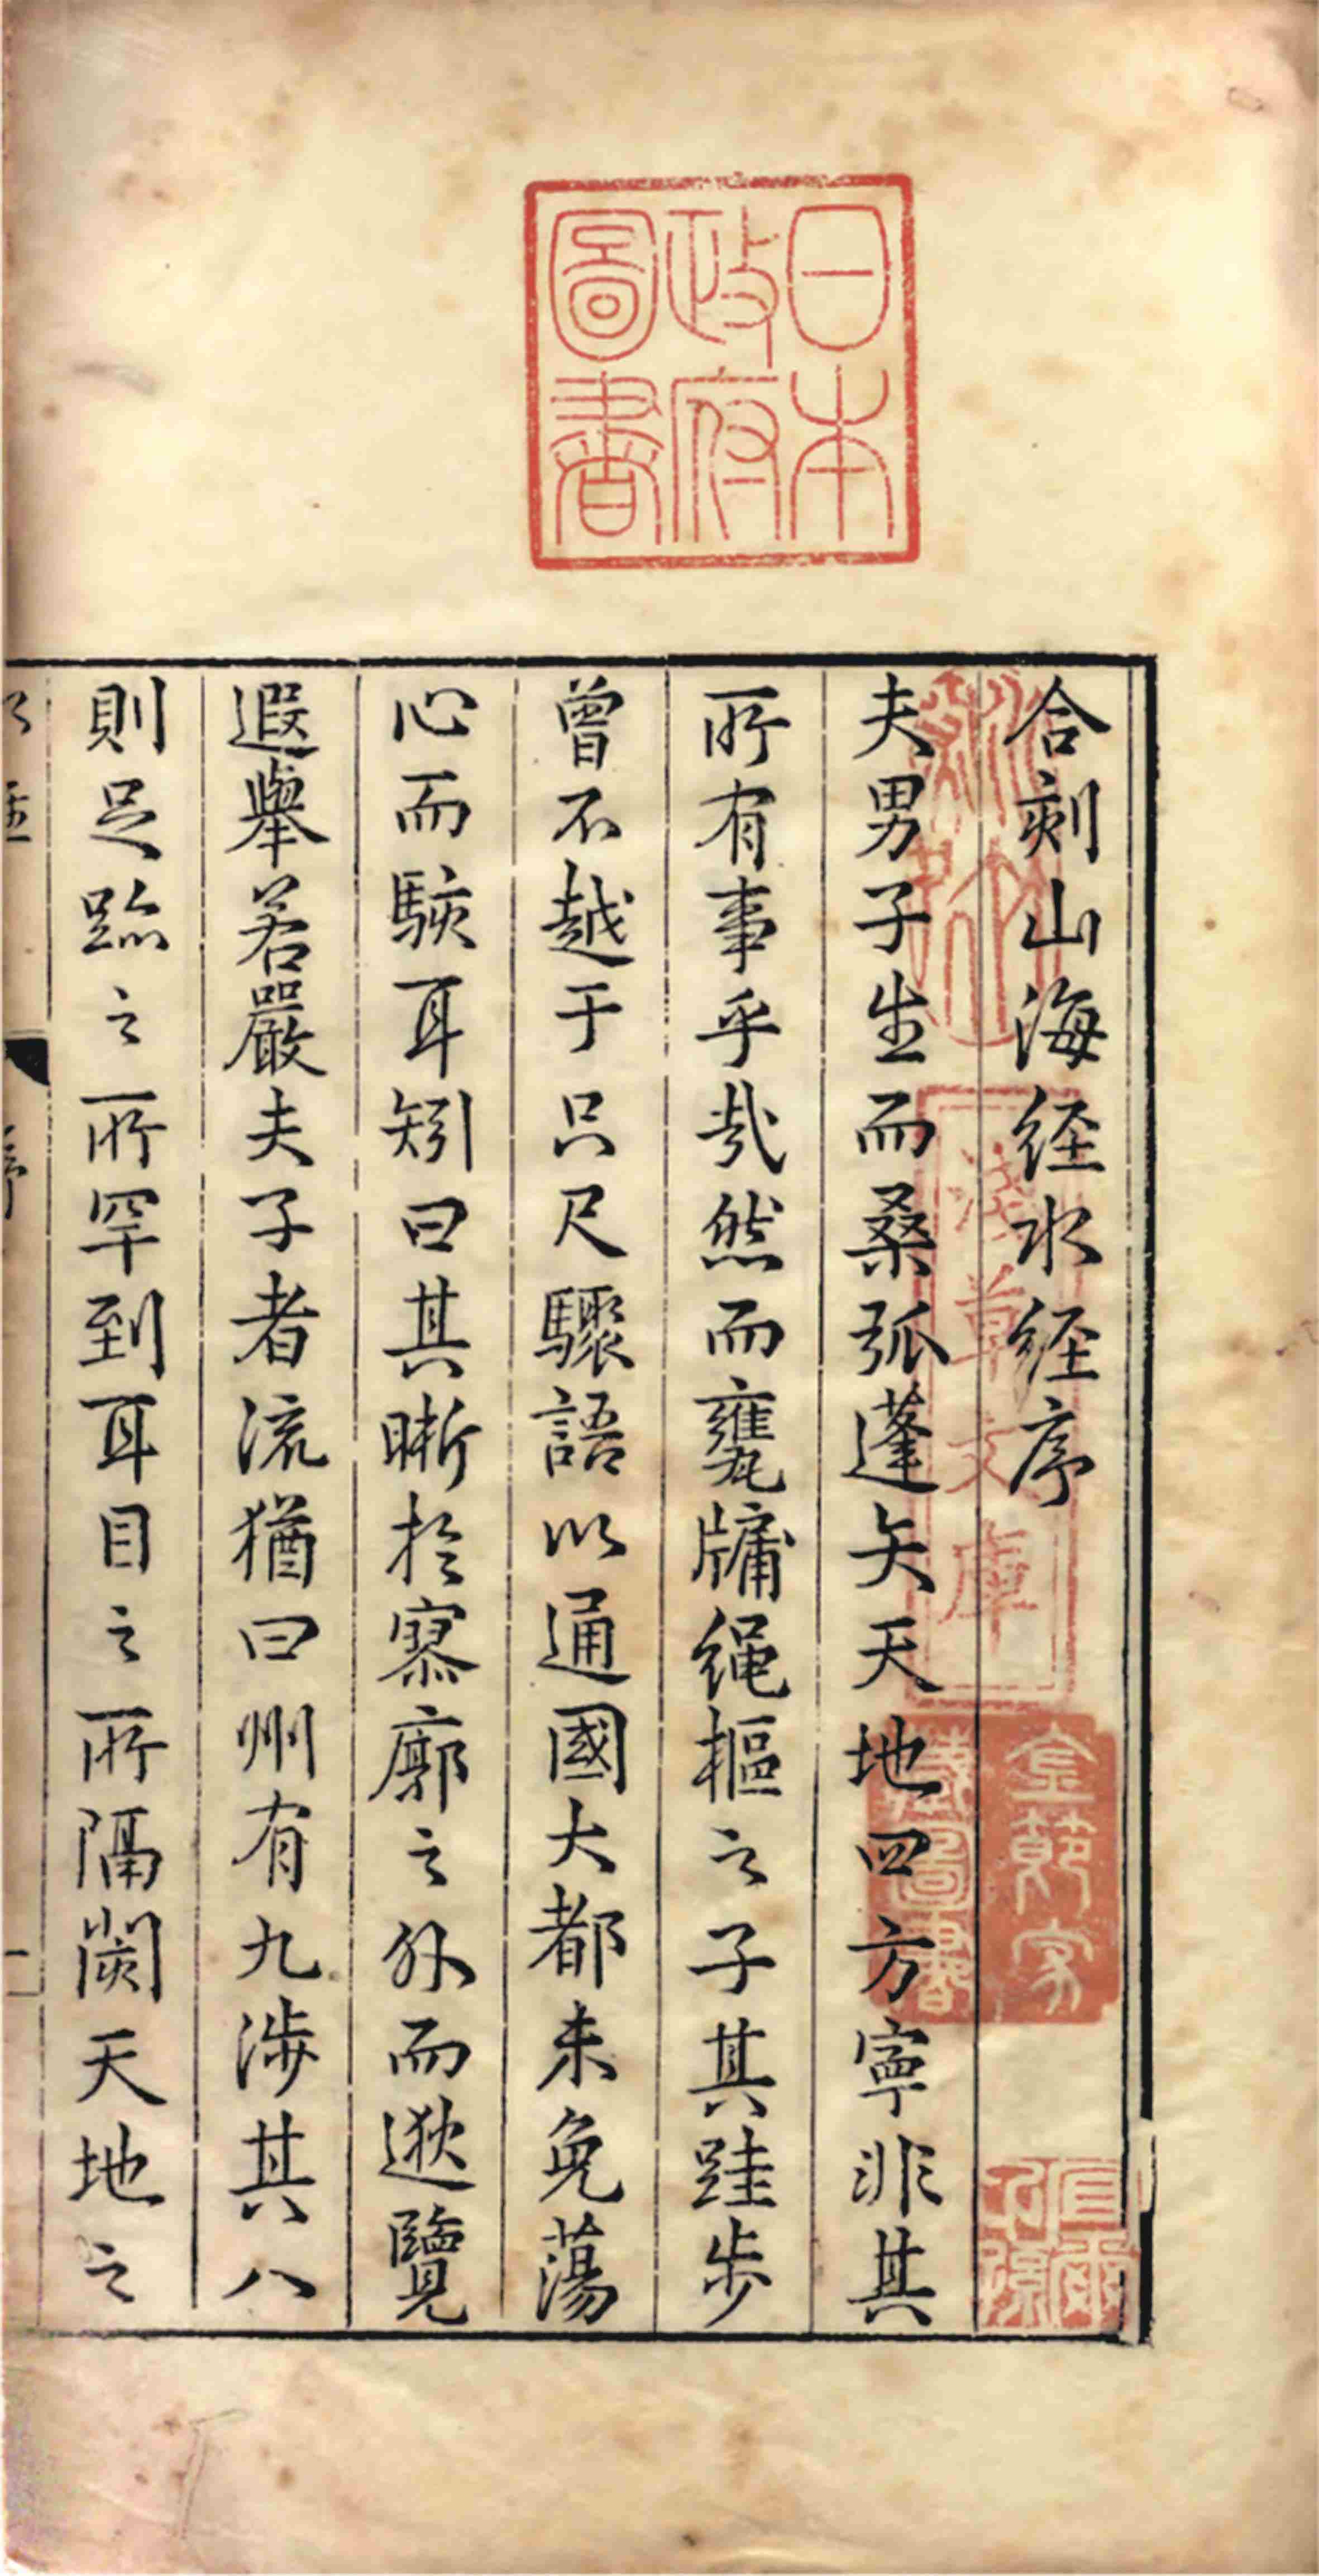 日本
政府
圖書
合刻山海経水経序
夫男子生而桑弧蓬矢天地四方寧非其
所有事乎哉然而甕牖繩樞之子其跬步
曾不越于只尺驟語以通國大都未免蕩
心而駭耳矧曰其晰於寥廓之外而遐覽
遐舉若嚴夫子者流猶曰州有九涉其八
則足跡之所罕到耳目之所隔閡天地之
淺草文庫
藏圖書